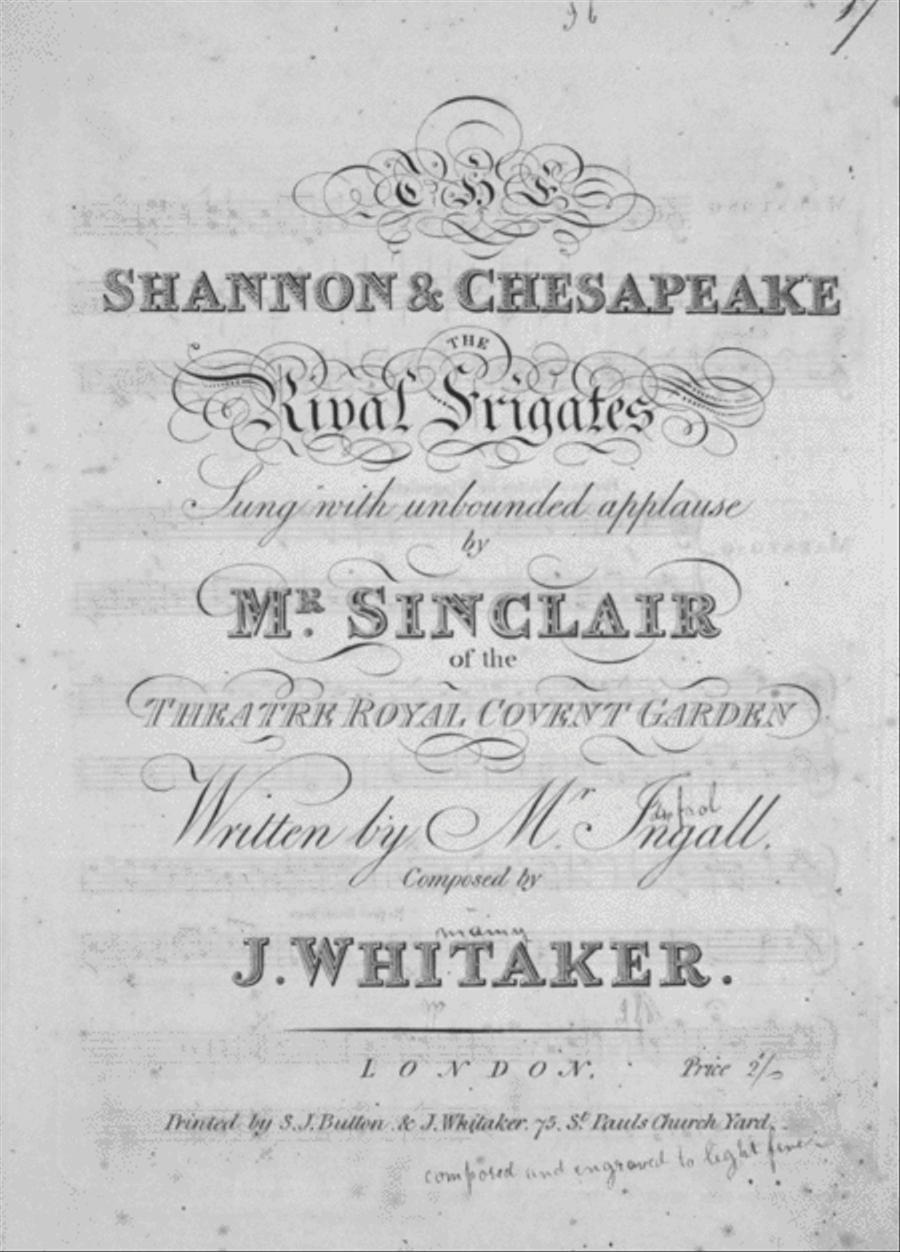 THE
SHANNON & CHESAPEAKE
THE
Rival Frigates
Sung with unbounded applause
by
MR. SINCLAIR
of the
THEATRE ROYAL COVENT GARDEN
Written by Mr. Ingall.
Composed by
J. WHITAKER.
LONDON. Price 2/-
Printed by S. J. Button & J. Whitaker. 75, St. Pauls Church Yard.
composed and engraved to light